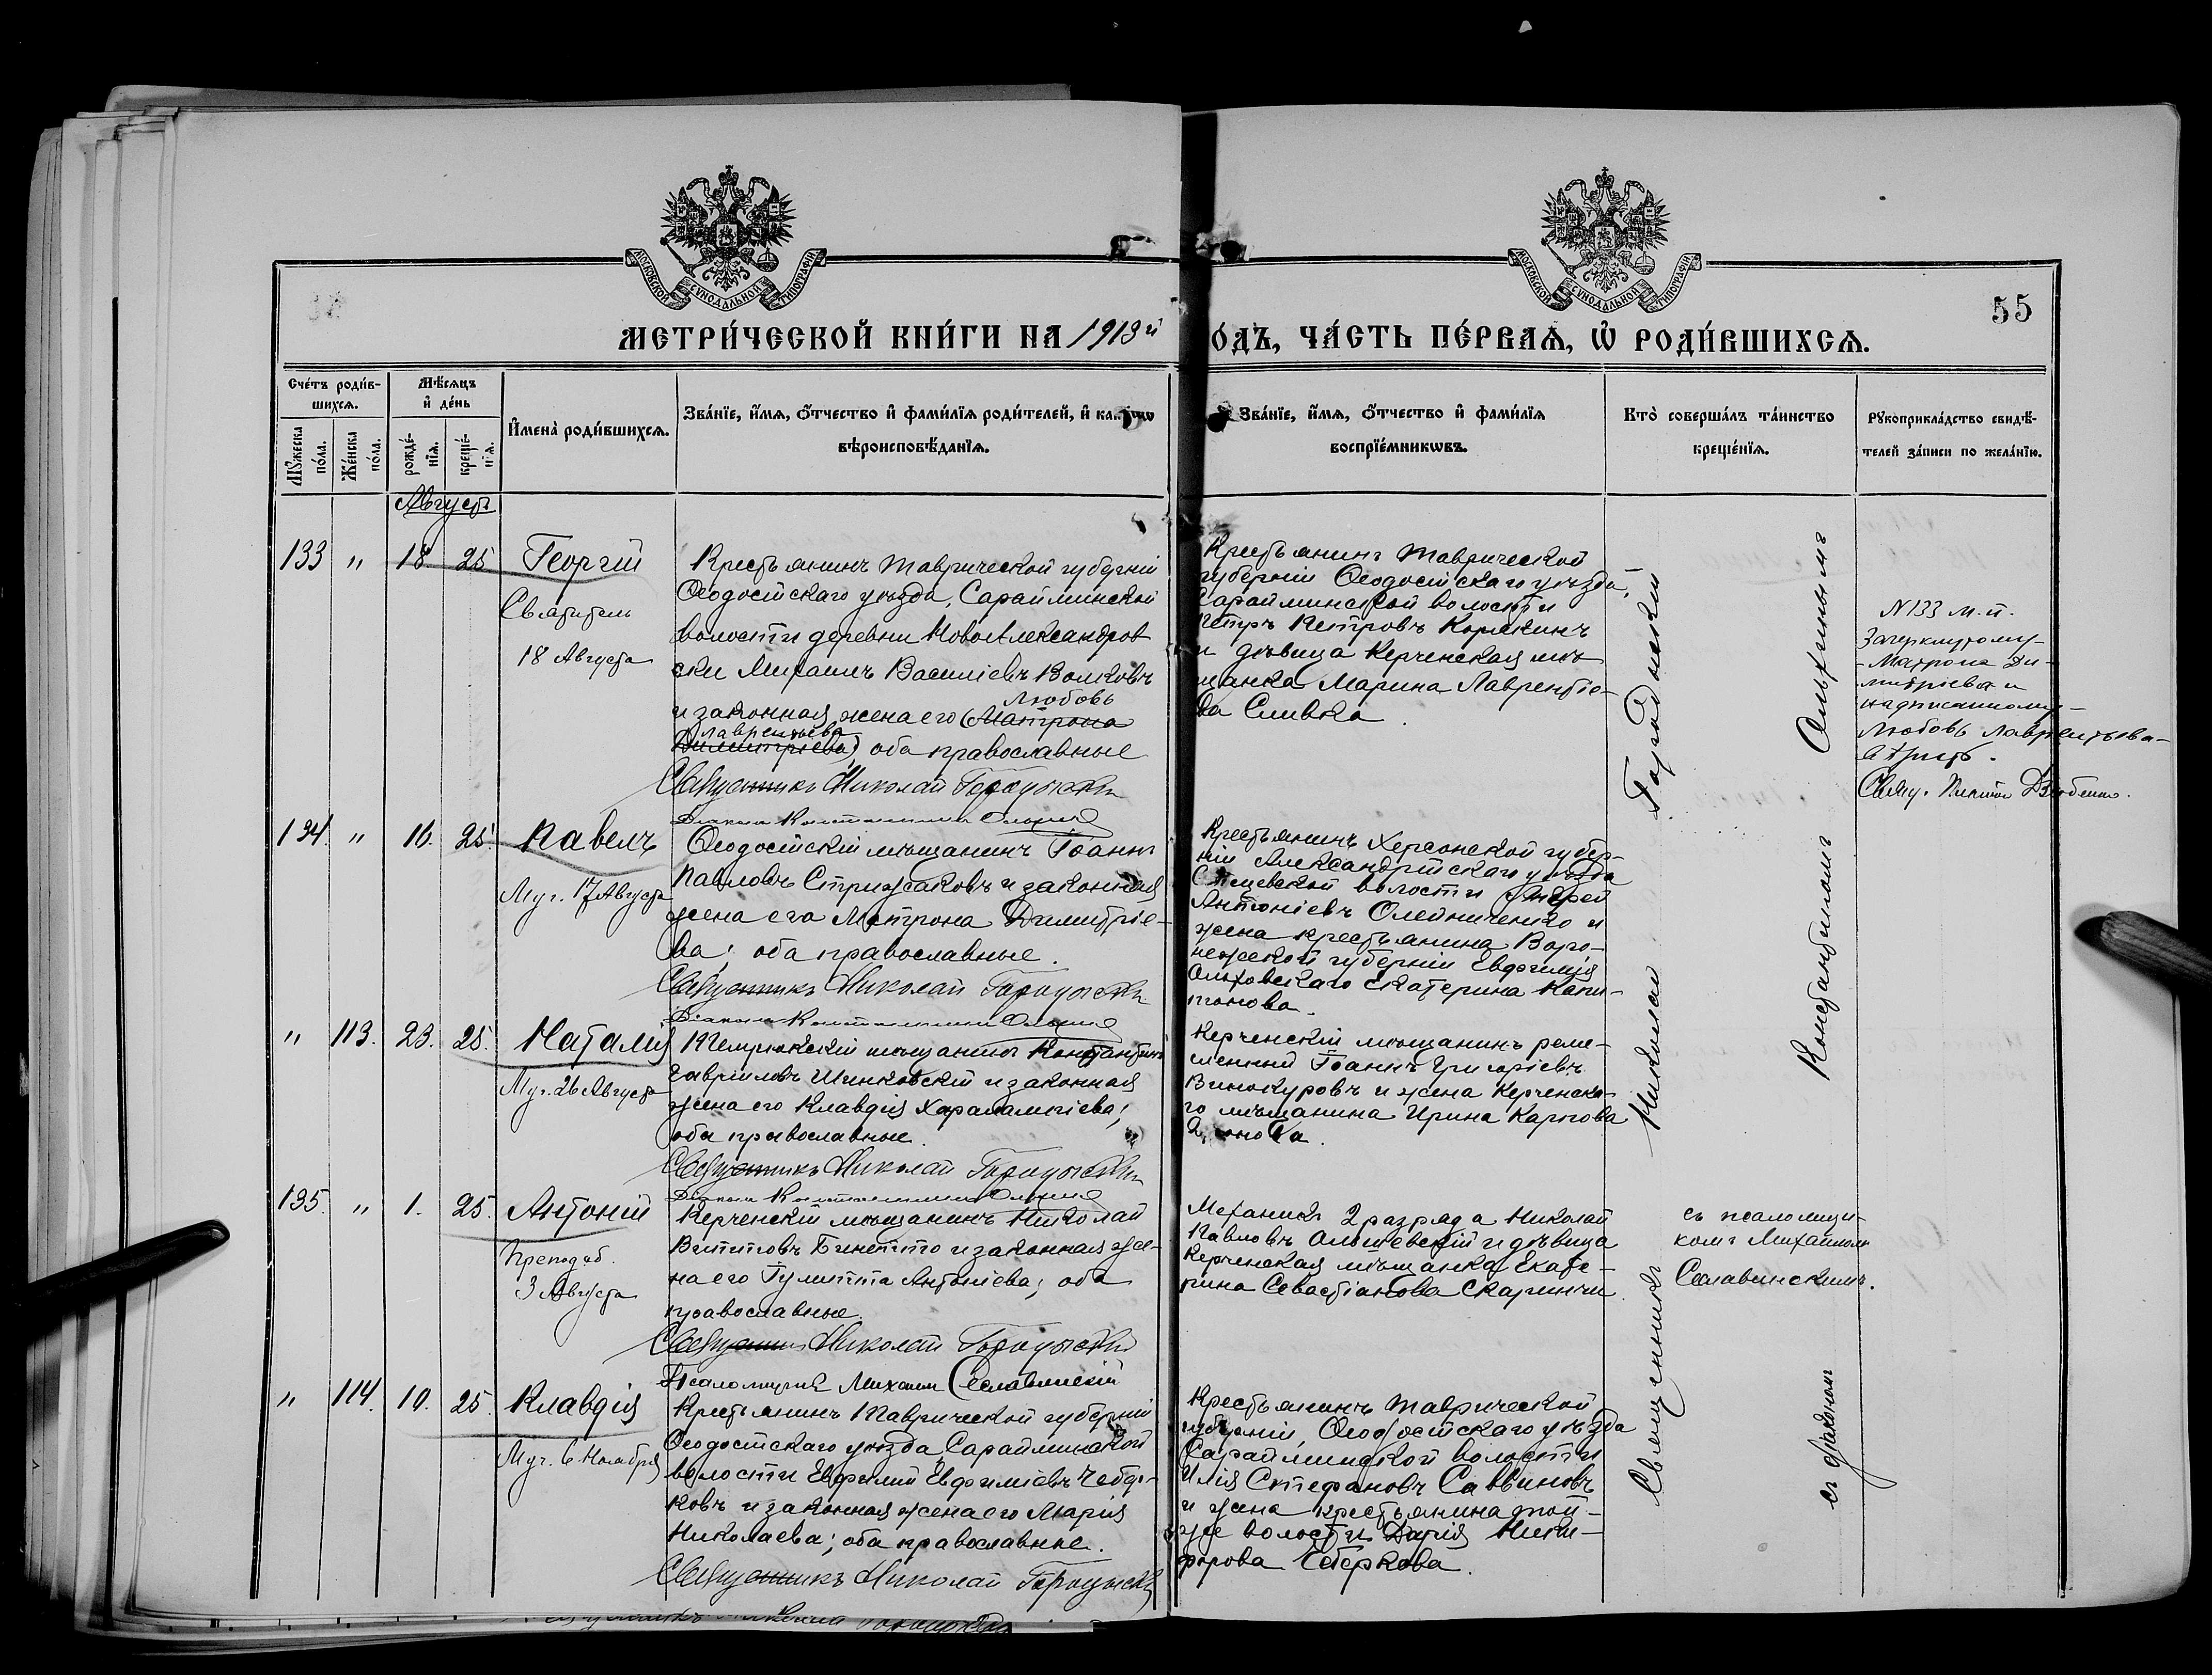 МОСКОВСКОЙ СѴНОДАЛЬНОЙ ТИПОГРАФІИ
МОСКОВСКОЙ СѴНОДАЛЬНОЙ ТИПОГРАФІИ
55
МЕТРИ́ЧЕСКОЙ КНИ́ГИ НА 1913й
ОДЪ, ЧА́СТЬ ПЕ́РВАѦ, Ѡ҆ РОДИ́ВШИХСѦ.
Сче́тъ роди́в-
шихсѧ.
Мѣ́сѧцъ
и҆ де́нь
Мꙋжеска по́ла.
Же́нска по́ла.
рожде́-
нїѧ.
креще́-
нїѧ.
И҆мена̀ роди́вшихсѧ.
Зва́нїе, и҆́мѧ, ѻ҆́тчество и҆ фами́лїѧ роди́телей, и҆
вѣроисповѣ́данїѧ.
Зва́нїе, и҆́мѧ, ѻ҆́тчество и҆ фами́лїѧ
воспрїе́мникѡвъ.
Кто̀ соверша́лъ та́инство
креще́нїѧ.
Рꙋкоприкла́дство свидѣ́-
телей за́писи по жела́нїю.
Августъ
133 " 18 25 Георгій
Святитель
18 Августа
Крестьянинъ Таврической губерніи
Ѳеодосійскаго уѣзда, Сарайминской
волости деревни Новоалександров
ски Михаилъ Василіевъ Волковъ
Любовь
и законная жена его (Матрона
Лаврентьева
Димитріева), оба православные
Священникъ Николай Городыскій
Діаконъ Константинъ
Крестьянинъ Таврической
губерніи Ѳеодосійскаго уѣзда,
Сарайминской волости
Петръ Петровъ Корякинъ
и дѣвица Керченская мѣ
щанка Марина Лаврентіе-
ва Сливка.
N 133 м. п.
Зачеркнутому-
-Матрона Ди-
митріева и
надписанному-
Любовь Лаврентьева-
вѣрить.
134. " 16. 25. Павелъ
Муч. 17 Августа
Ѳеодосійскій мѣщанинъ Іоаннъ
Павловъ Стрижаковъ и законная
жена его Матрона Димитріе-
ва; оба православные.
Священникъ Николай Городыскій
Діаконъ Константинъ
Крестьянинъ Херсонской губер-
ніи Александрійскаго уѣзда
волости Андрей
Антоніевъ Олейниченко и
жена крестьянина Воро-
нежской губерніи Евфимія
Ольховскаго Екатерина Капи-
тонова.
" 113. 23. 25. Наталія
Муч. 26 Августа
Темрюкскій мѣщанинъ Константинъ
Гавриловъ Шинковскій и законная
жена его Клавдія Харалампіева;
оба православные.
Священникъ Николай Городыскій
Діаконъ Константинъ
Керченскій мѣщанинъ реме-
сленный Іоаннъ Григоріевъ
Винокуровъ и жена Керченска-
го мѣщанина Ирина Карпова
135. " 1. 25. Антоній
Преподоб.
3 Августа
Керченскій мѣщанинъ Николай
Вититовъ Бинетто и законная же-
на его Гулитта Антоніева; оба
православные
Священникъ Николай Городыскій
Псаломщикъ Михаилъ Сеславинскій
Механикъ 2 разряда Николай
Павловъ Ольшевскій и дѣвица
Керченская мѣщанка Екате-
рина Севастіанова Скаринчи.
съ псаломщи-
комъ Михаиломъ
Сеславинскимъ.
" 114. 10. 25. Клавдія
Муч. 6 Ноября
Крестьянинъ Таврической губерніи
Ѳеодосійскаго уѣзда, Сарайминской
волости Евфимій Евфиміевъ Чебер-
ковъ и законная жена его Марія
Николаева; оба православные.
Священникъ Николай Городыскій
Крестьянинъ Таврической
губерніи, Ѳеодосійскаго уѣзда
Сарайминской волости
Илія Стефановъ Саввиновъ
и жена крестьянина той-
же волости Дарія Ники-
форова Чеберкова.
Священникъ Николай Городыскій
съ діакономъ Константиномъ Ольхинымъ